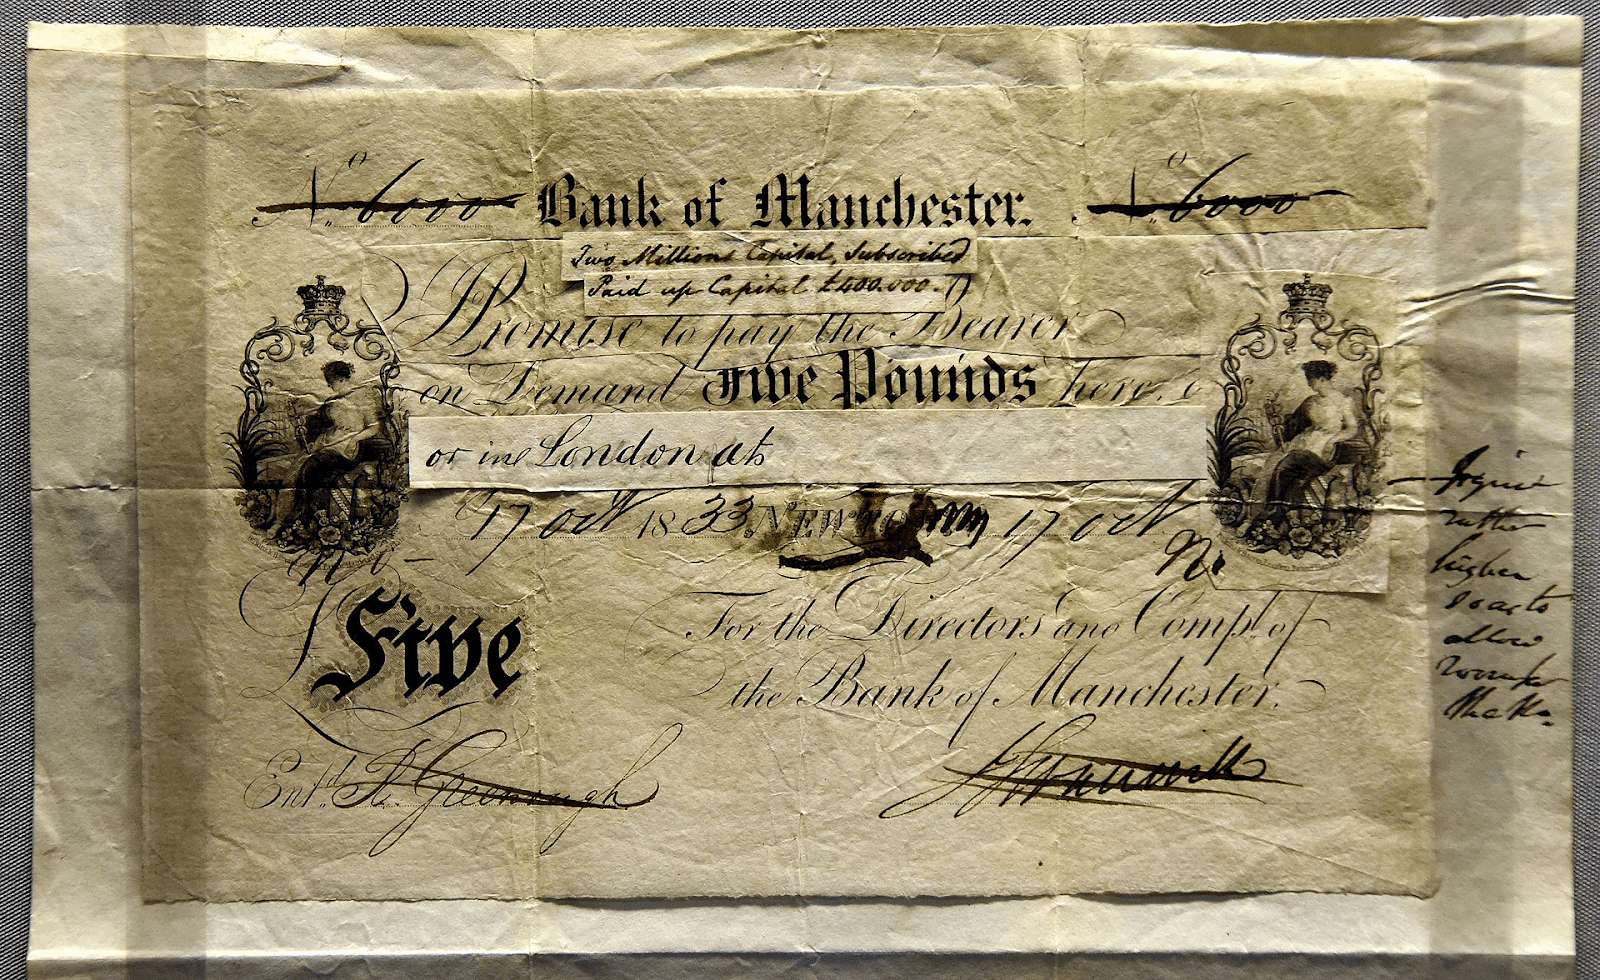 No. 6000 Bank of Manchester. No. 6000
Two Millions Capital, Subscribed
Paid up Capital £400.000.
Promise to pay the Bearer
on Demand Five Pounds here,
or in London at
17 Oct 1833. NEWTON 17 Oct
No
£ Five
For the Directors and Compy. of
the Bank of Manchester.
Entd. R. Greenough
rather
higher
so as to
allow
room for
the No.